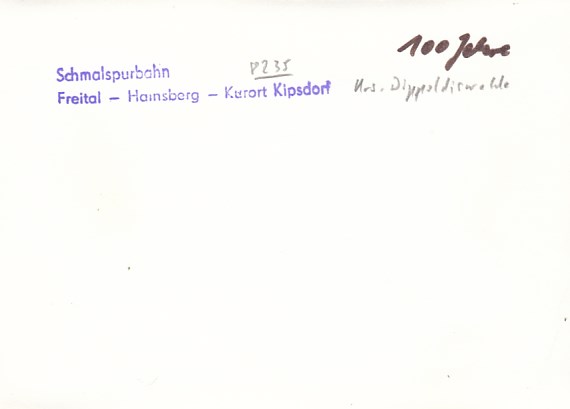 100 Jahre
Schmalspurbahn P235
Freital – Hainsberg – Kurort Kipsdorf Krs. Dippoldiswalde